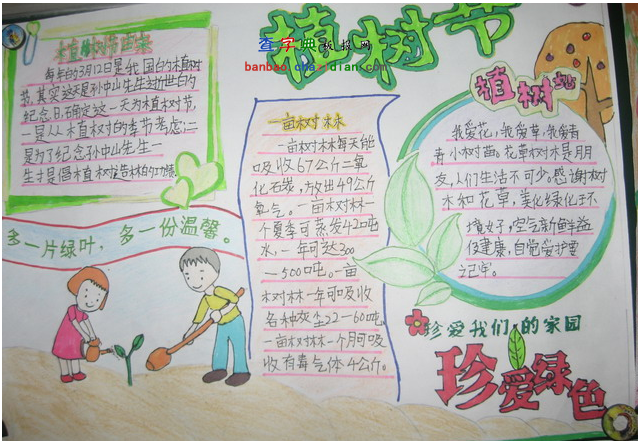 植树节
查字典板报网
banbao.chazidian.com
植树节由来
每年的3月12日是我国的植树
节,其实这天是孙中山先生逝世的
纪念日,确定这一天为植树节,
一是从植树的季节考虑;二
是为了纪念孙中山先生一
生才是倡植树造林的功绩.
多一片绿叶,多一份温馨。
一亩树林
一亩树林每天能
吸收67公斤二氧
化石炭,放出49公斤
氧气。一亩树林一
个夏季可蒸发42吨
水,一年可达300
—500吨。一亩
树林一年可吸收
各种灰尘22—60吨.
一亩树林一个月可吸
收有毒气体4公斤。
植树
我爱花,我爱草,我爱青
青小树苗。花草树木是朋
友,人们生活不可少。感谢树
木和花草,美化绿化环
境好,空气新鲜益
健康,自觉爱护要
记牢。
珍爱我们的家园
珍爱绿色